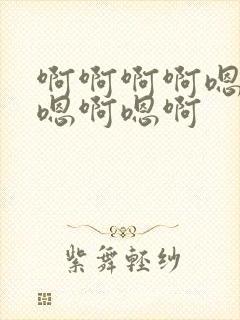 啊啊啊啊嗯
嗯啊嗯啊
紫舞轻纱